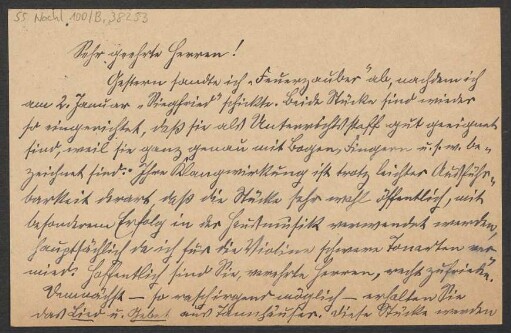 55 Nachl 100/B, 38253
Sehr geehrte Herren!
Gestern sandte ich „Feuerzauber“ ab, nachdem ich
am 2. Januar „Siegfried“ schickte. Beide Stücke sind wieder
so eingerichtet, daß sie als Unterrichtsstoff gut geeignet
sind, weil sie ganz genau mit Bogen, Fingern u.s.w. be-
zeichnet sind. Ihre Klangwirkung ist trotz leichter Ausführ-
barkeit derart, daß die Stücke sehr wohl öffentlich, mit
besonderem Erfolg in der Hausmusik verwendet werden,
hauptsächlich da ich für die Violine schwere Tonarten ver-
mied. Hoffentlich sind Sie, verehrte Herren, recht zufrieden.
Demnächst – so rasch irgend möglich – erhalten Sie
das Lied u. Gebet aus Tannhäuser. Diese Stücke werden